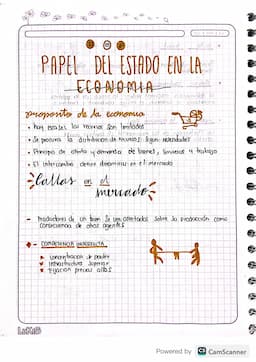 PAPEL DEL ESTADO EN LA
ECONOMIA
proposito de la economia
• hay escases los recursos son limitados
• Se procura la distribución de recursos según necesidades
• Principio de oferta y demanda de bienes, servicios y trabajo
• El intercambio debe desarrollarse en el mercado
fallas en el
mercado
- Productores de un bien se ven afectados sobre la producción como
consecuencia de otros agentes
- COMPETENCIA IMPERFECTA
concentración de poder
infraestructura superior
fijación precios altos
Powered by CS CamScanner